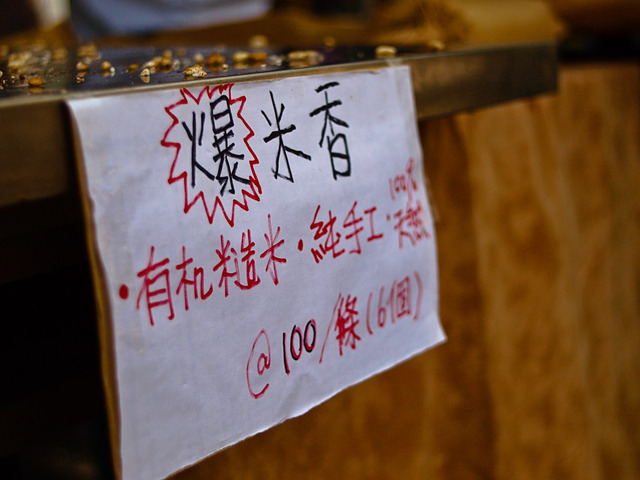 爆米香
100%
・有机糙米・純手工・天然
@100/條(6個)